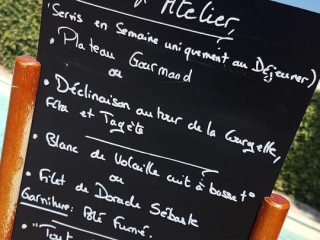 Atelier,
(Servis en Semaine uniquement au Déjeuner)
• Plateau Gourmand
ou
• Déclinaison autour de la Courgette,
Feta et Tagète
• Blanc de Volaille cuit à basse t°
ou
• Filet de Dorade Sébaste
Garniture: Blé Fumé.
• "Tout